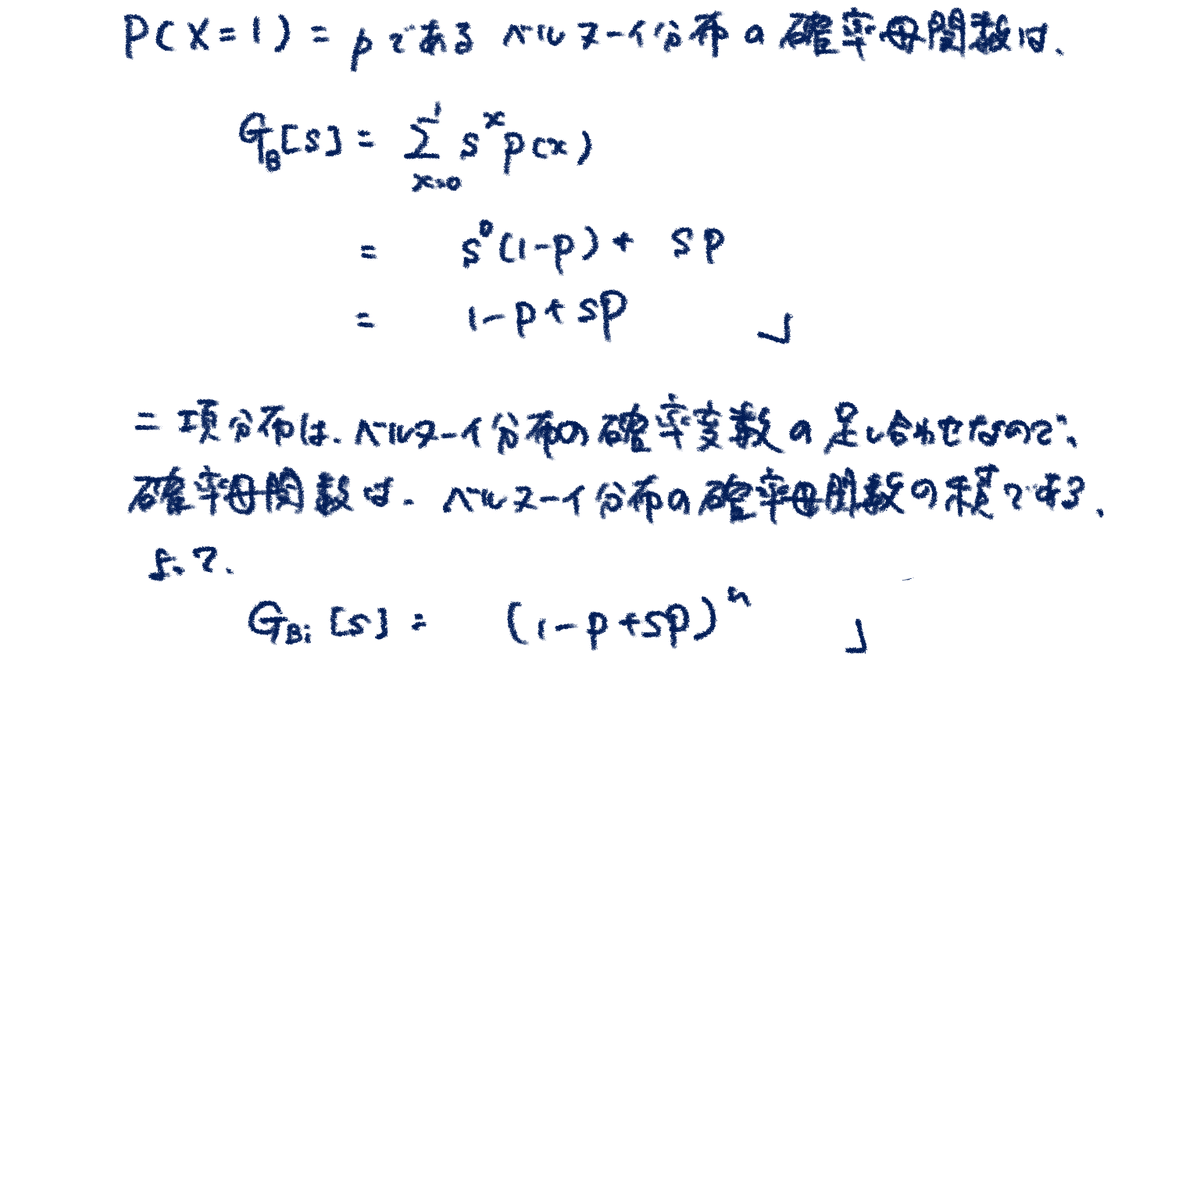 P(X=1) = p である ベルヌーイ分布の確率母関数は、
G_B[s] = Σ_{x=0}^{1} s^x p(x)
= s^0(1-p) + sp
= 1-p+sp 」
二項分布は、ベルヌーイ分布の確率変数の足し合わせなので、
確率母関数は、ベルヌーイ分布の確率母関数の積である、
よって、
G_{Bi}[s] = (1-p+sp)^n 」